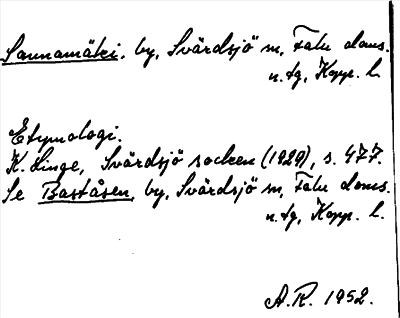 Saunamäki, by, Svärdsjö sn, Falu doms.
n. tg, Kopp. l.
Etymologi.
K. Linge, Svärdsjö socken (1929), s. 477.
Se Baståsen, by, Svärdsjö sn, Falu doms.
n. tg, Kopp. l.
A.R. 1952.